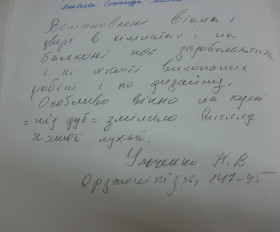 Встановлені вікна і
двері в кімнаті і на
балконі нас задовольнили
і по якості виконаних
робіт і по дизайну.
Особливо вікно на кухні
"під дуб" змінило вигляд
нашої кухні.
Н. В.
147-45